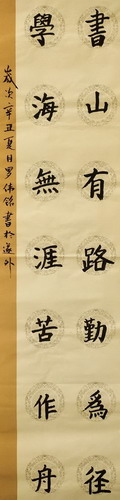 書山有路勤為徑
學海無涯苦作舟
歲次辛丑夏日罗伟銘書於遂外